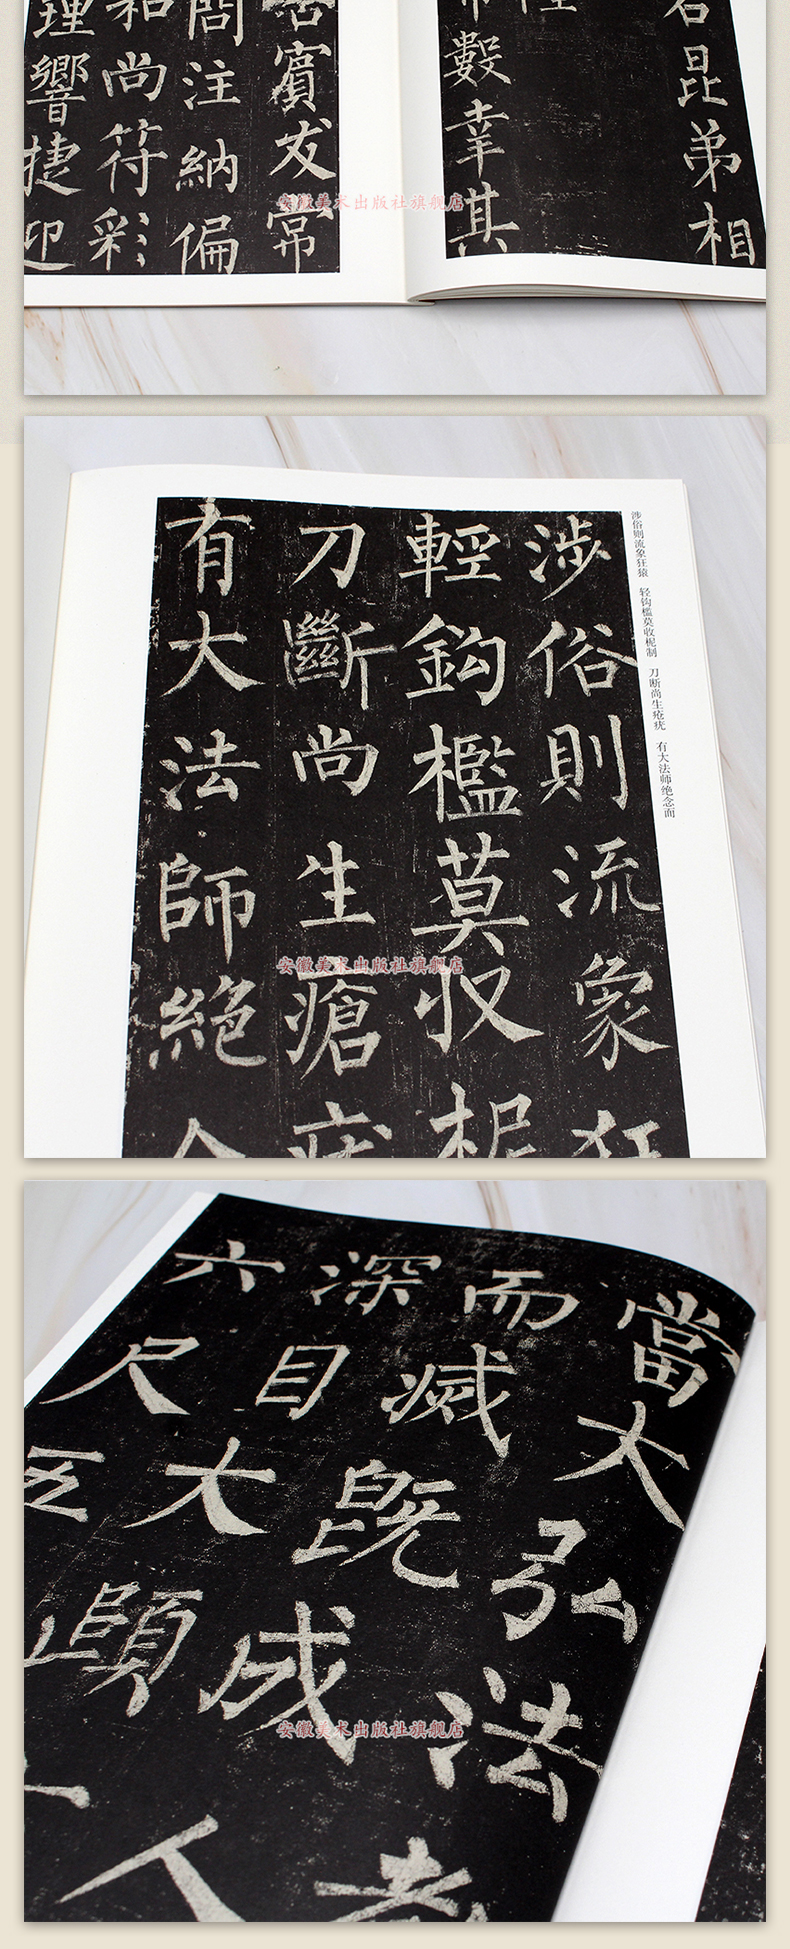 昆弟相
數幸其
賓友常
問注納偏
和尚符彩
理響捷迎
安徽美术出版社旗舰店
涉俗则流象狂猿 轻钩槛莫收柅制 刀断尚生疮疣 有大法师绝念而
涉俗則流象狂
輕鈎檻莫收柅
刀斷尚生瘡疣
有大法師絕念
安徽美术出版社旗舰店
當大弘法
而滅既成人
深目大頤
六尺五
安徽美术出版社旗舰店